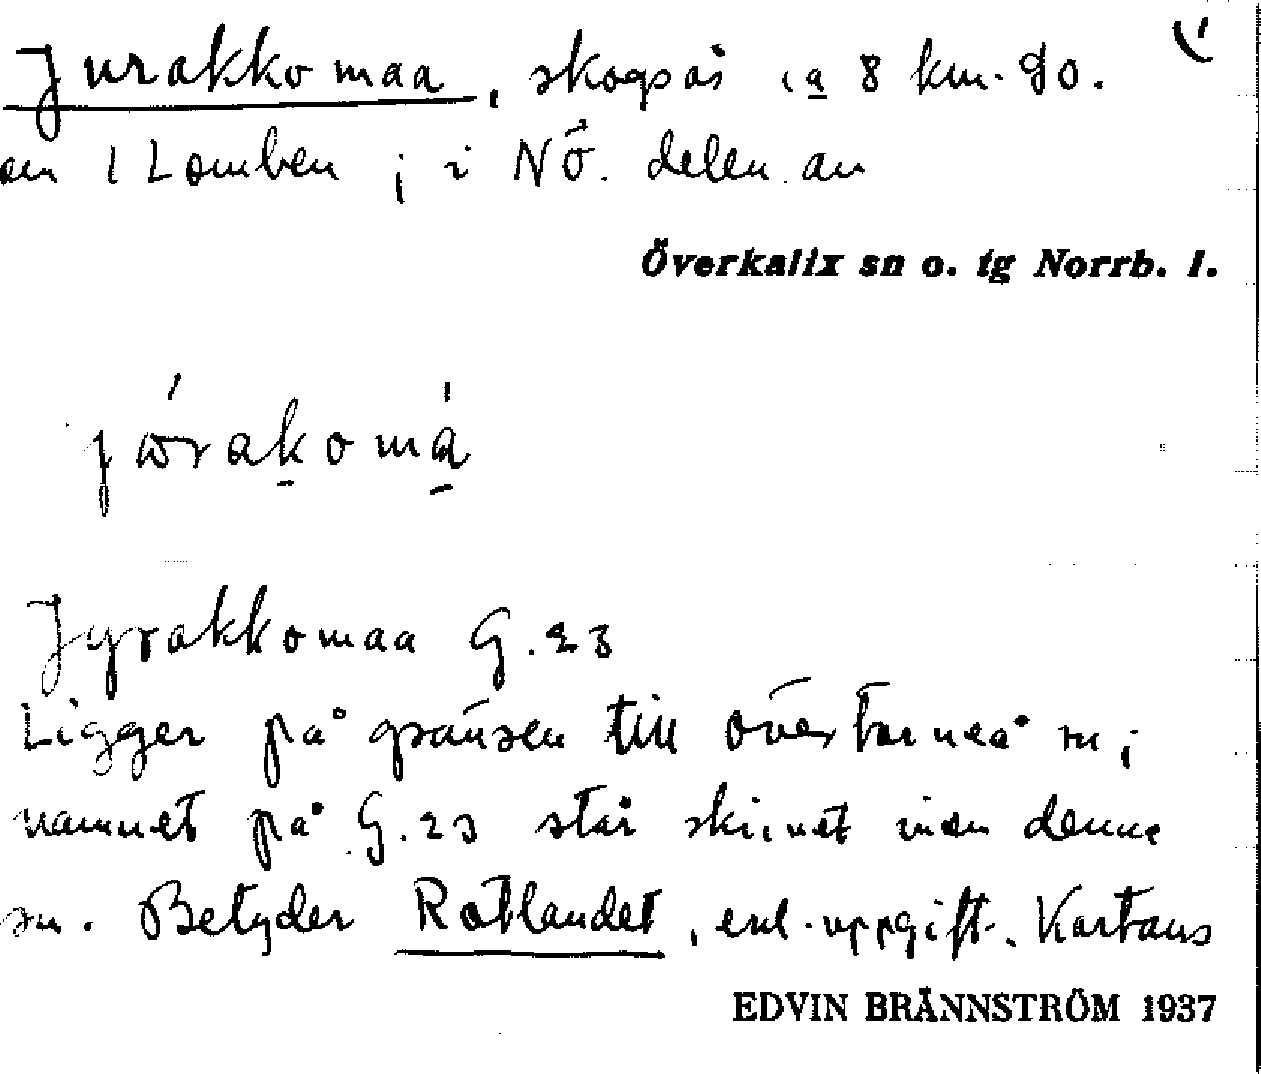 Jurakkomaa, skogsås ca 8 km. SO.
om 1 Lomben ; i NÖ. delen av
Överkalix sn o. tg Norrb. l.
Jyrakkomaa G.23
Ligger på gränsen till Övertorneå sn ;
namnet på G.23 står skrivet inom denna
sn. Betyder Rotlandet, enl. uppgift. Kartans
EDVIN BRÄNNSTRÖM 1937